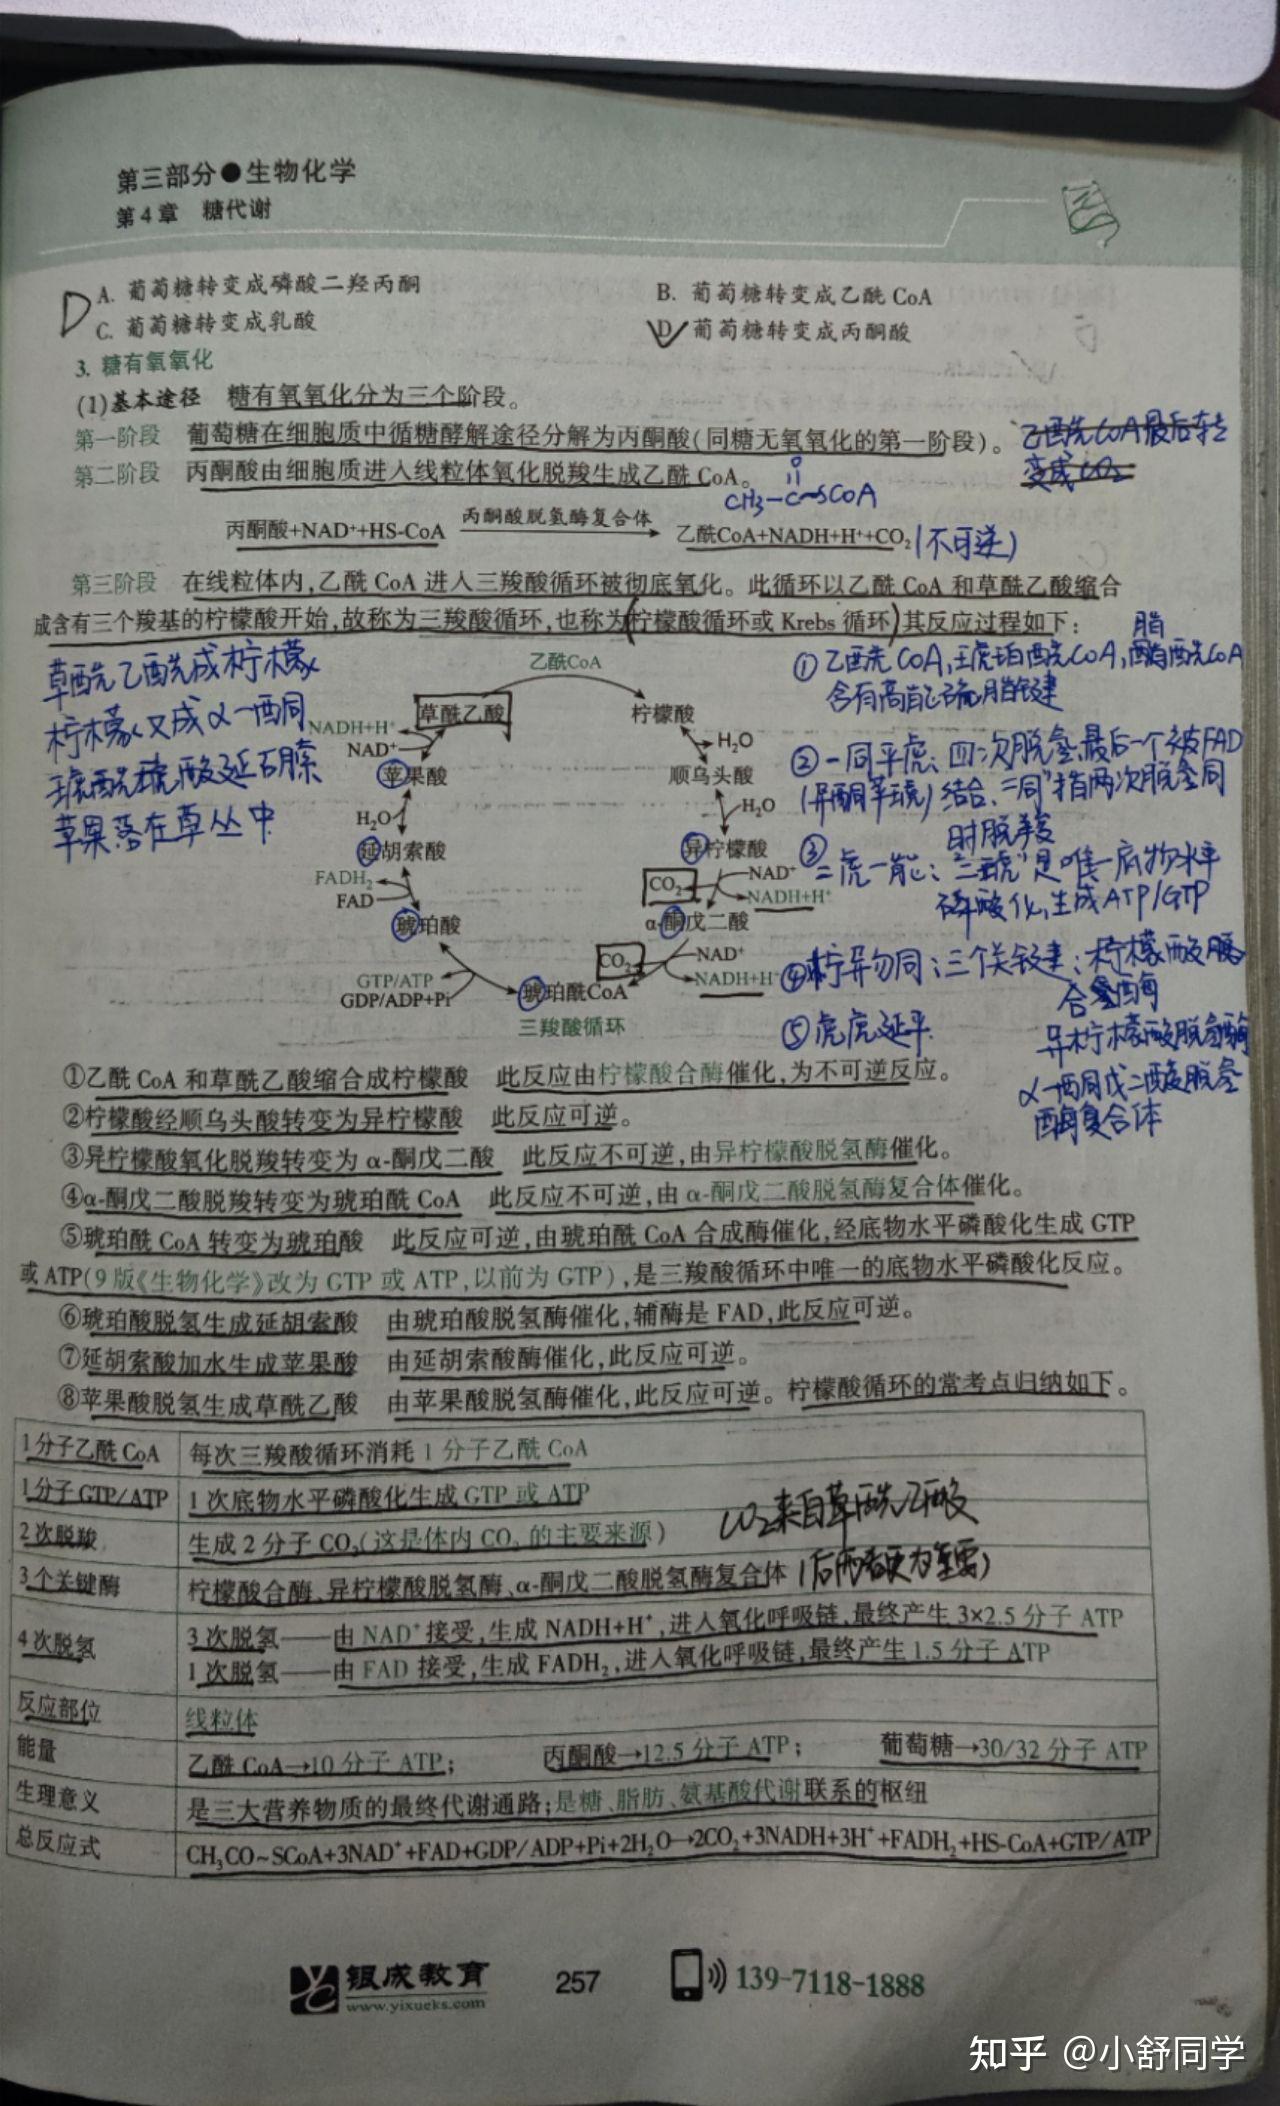 第三部分●生物化学
第4章 糖代谢
D
A. 葡萄糖转变成磷酸二羟丙酮
B. 葡萄糖转变成乙酰 CoA
C. 葡萄糖转变成乳酸
D. 葡萄糖转变成丙酮酸
3. 糖有氧氧化
(1)基本途径 糖有氧氧化分为三个阶段。
第一阶段 葡萄糖在细胞质中循糖酵解途径分解为丙酮酸(同糖无氧氧化的第一阶段)。
乙酰CoA最后转
变成CO2
第二阶段 丙酮酸由细胞质进入线粒体氧化脱羧生成乙酰 CoA。
O
CH3-C~SCoA
丙酮酸+NAD⁺+HS-CoA 丙酮酸脱氢酶复合体→ 乙酰CoA+NADH+H⁺+CO₂(不可逆)
第三阶段 在线粒体内,乙酰 CoA 进入三羧酸循环被彻底氧化。此循环以乙酰 CoA 和草酰乙酸缩合
成含有三个羧基的柠檬酸开始,故称为三羧酸循环,也称为(柠檬酸循环或 Krebs 循环)其反应过程如下:
草酰乙酰成柠檬
柠檬又成α-酮
琥酰琥酸延胡索
草果落在草丛中
乙酰CoA
草酰乙酸
柠檬酸
NADH+H⁺
NAD⁺
H₂O
苹果酸
顺乌头酸
H₂O
H₂O
延胡索酸
异柠檬酸
FADH₂
FAD
CO₂
NAD⁺
NADH+H⁺
琥珀酸
α-酮戊二酸
CO₂
NAD⁺
NADH+H⁺
GTP/ATP
GDP/ADP+Pi
琥珀酰CoA
三羧酸循环
①乙酰CoA,琥珀酰CoA,脂酰CoA
含有高能硫脂键
②一同平虎、四次脱氢,最后一个被FAD
(异酮苹琥)结合、"一同"指两次脱氢同
时脱羧
③二虎一能:"二琥"是唯一底物水平
磷酸化,生成ATP/GTP
④柠异勿同:三个关键:柠檬酸
合酶
异柠檬酸脱氢酶
α-酮戊二酸脱氢
酶复合体
⑤虎虎延平
①乙酰 CoA 和草酰乙酸缩合成柠檬酸 此反应由柠檬酸合酶催化,为不可逆反应。
②柠檬酸经顺乌头酸转变为异柠檬酸 此反应可逆。
③异柠檬酸氧化脱羧转变为 α-酮戊二酸 此反应不可逆,由异柠檬酸脱氢酶催化。
④α-酮戊二酸脱羧转变为琥珀酰 CoA 此反应不可逆,由 α-酮戊二酸脱氢酶复合体催化。
⑤琥珀酰 CoA 转变为琥珀酸 此反应可逆,由琥珀酰 CoA 合成酶催化,经底物水平磷酸化生成 GTP
或 ATP(9 版《生物化学》改为 GTP 或 ATP,以前为 GTP),是三羧酸循环中唯一的底物水平磷酸化反应。
⑥琥珀酸脱氢生成延胡索酸 由琥珀酸脱氢酶催化,辅酶是 FAD,此反应可逆。
⑦延胡索酸加水生成苹果酸 由延胡索酸酶催化,此反应可逆。
⑧苹果酸脱氢生成草酰乙酸 由苹果酸脱氢酶催化,此反应可逆。柠檬酸循环的常考点归纳如下。
1分子乙酰 CoA 每次三羧酸循环消耗 1 分子乙酰 CoA
1分子 GTP/ATP 1 次底物水平磷酸化生成 GTP 或 ATP
2次脱羧 生成 2 分子 CO₂(这是体内 CO₂ 的主要来源)
CO2来自草酰乙酸
3个关键酶 柠檬酸合酶、异柠檬酸脱氢酶、α-酮戊二酸脱氢酶复合体(后两者更为重要)
4次脱氢 3 次脱氢——由 NAD⁺接受,生成 NADH+H⁺,进入氧化呼吸链,最终产生 3×2.5 分子 ATP
1 次脱氢——由 FAD 接受,生成 FADH₂,进入氧化呼吸链,最终产生 1.5 分子 ATP
反应部位 线粒体
能量 乙酰 CoA→10 分子 ATP; 丙酮酸→12.5 分子 ATP; 葡萄糖→30/32 分子 ATP
生理意义 是三大营养物质的最终代谢通路;是糖、脂肪、氨基酸代谢联系的枢纽
总反应式 CH₃CO~SCoA+3NAD⁺+FAD+GDP/ADP+Pi+2H₂O→2CO₂+3NADH+3H⁺+FADH₂+HS-CoA+GTP/ATP
银成教育
www.yixueks.com
257
139-7118-1888
知乎 @小舒同学